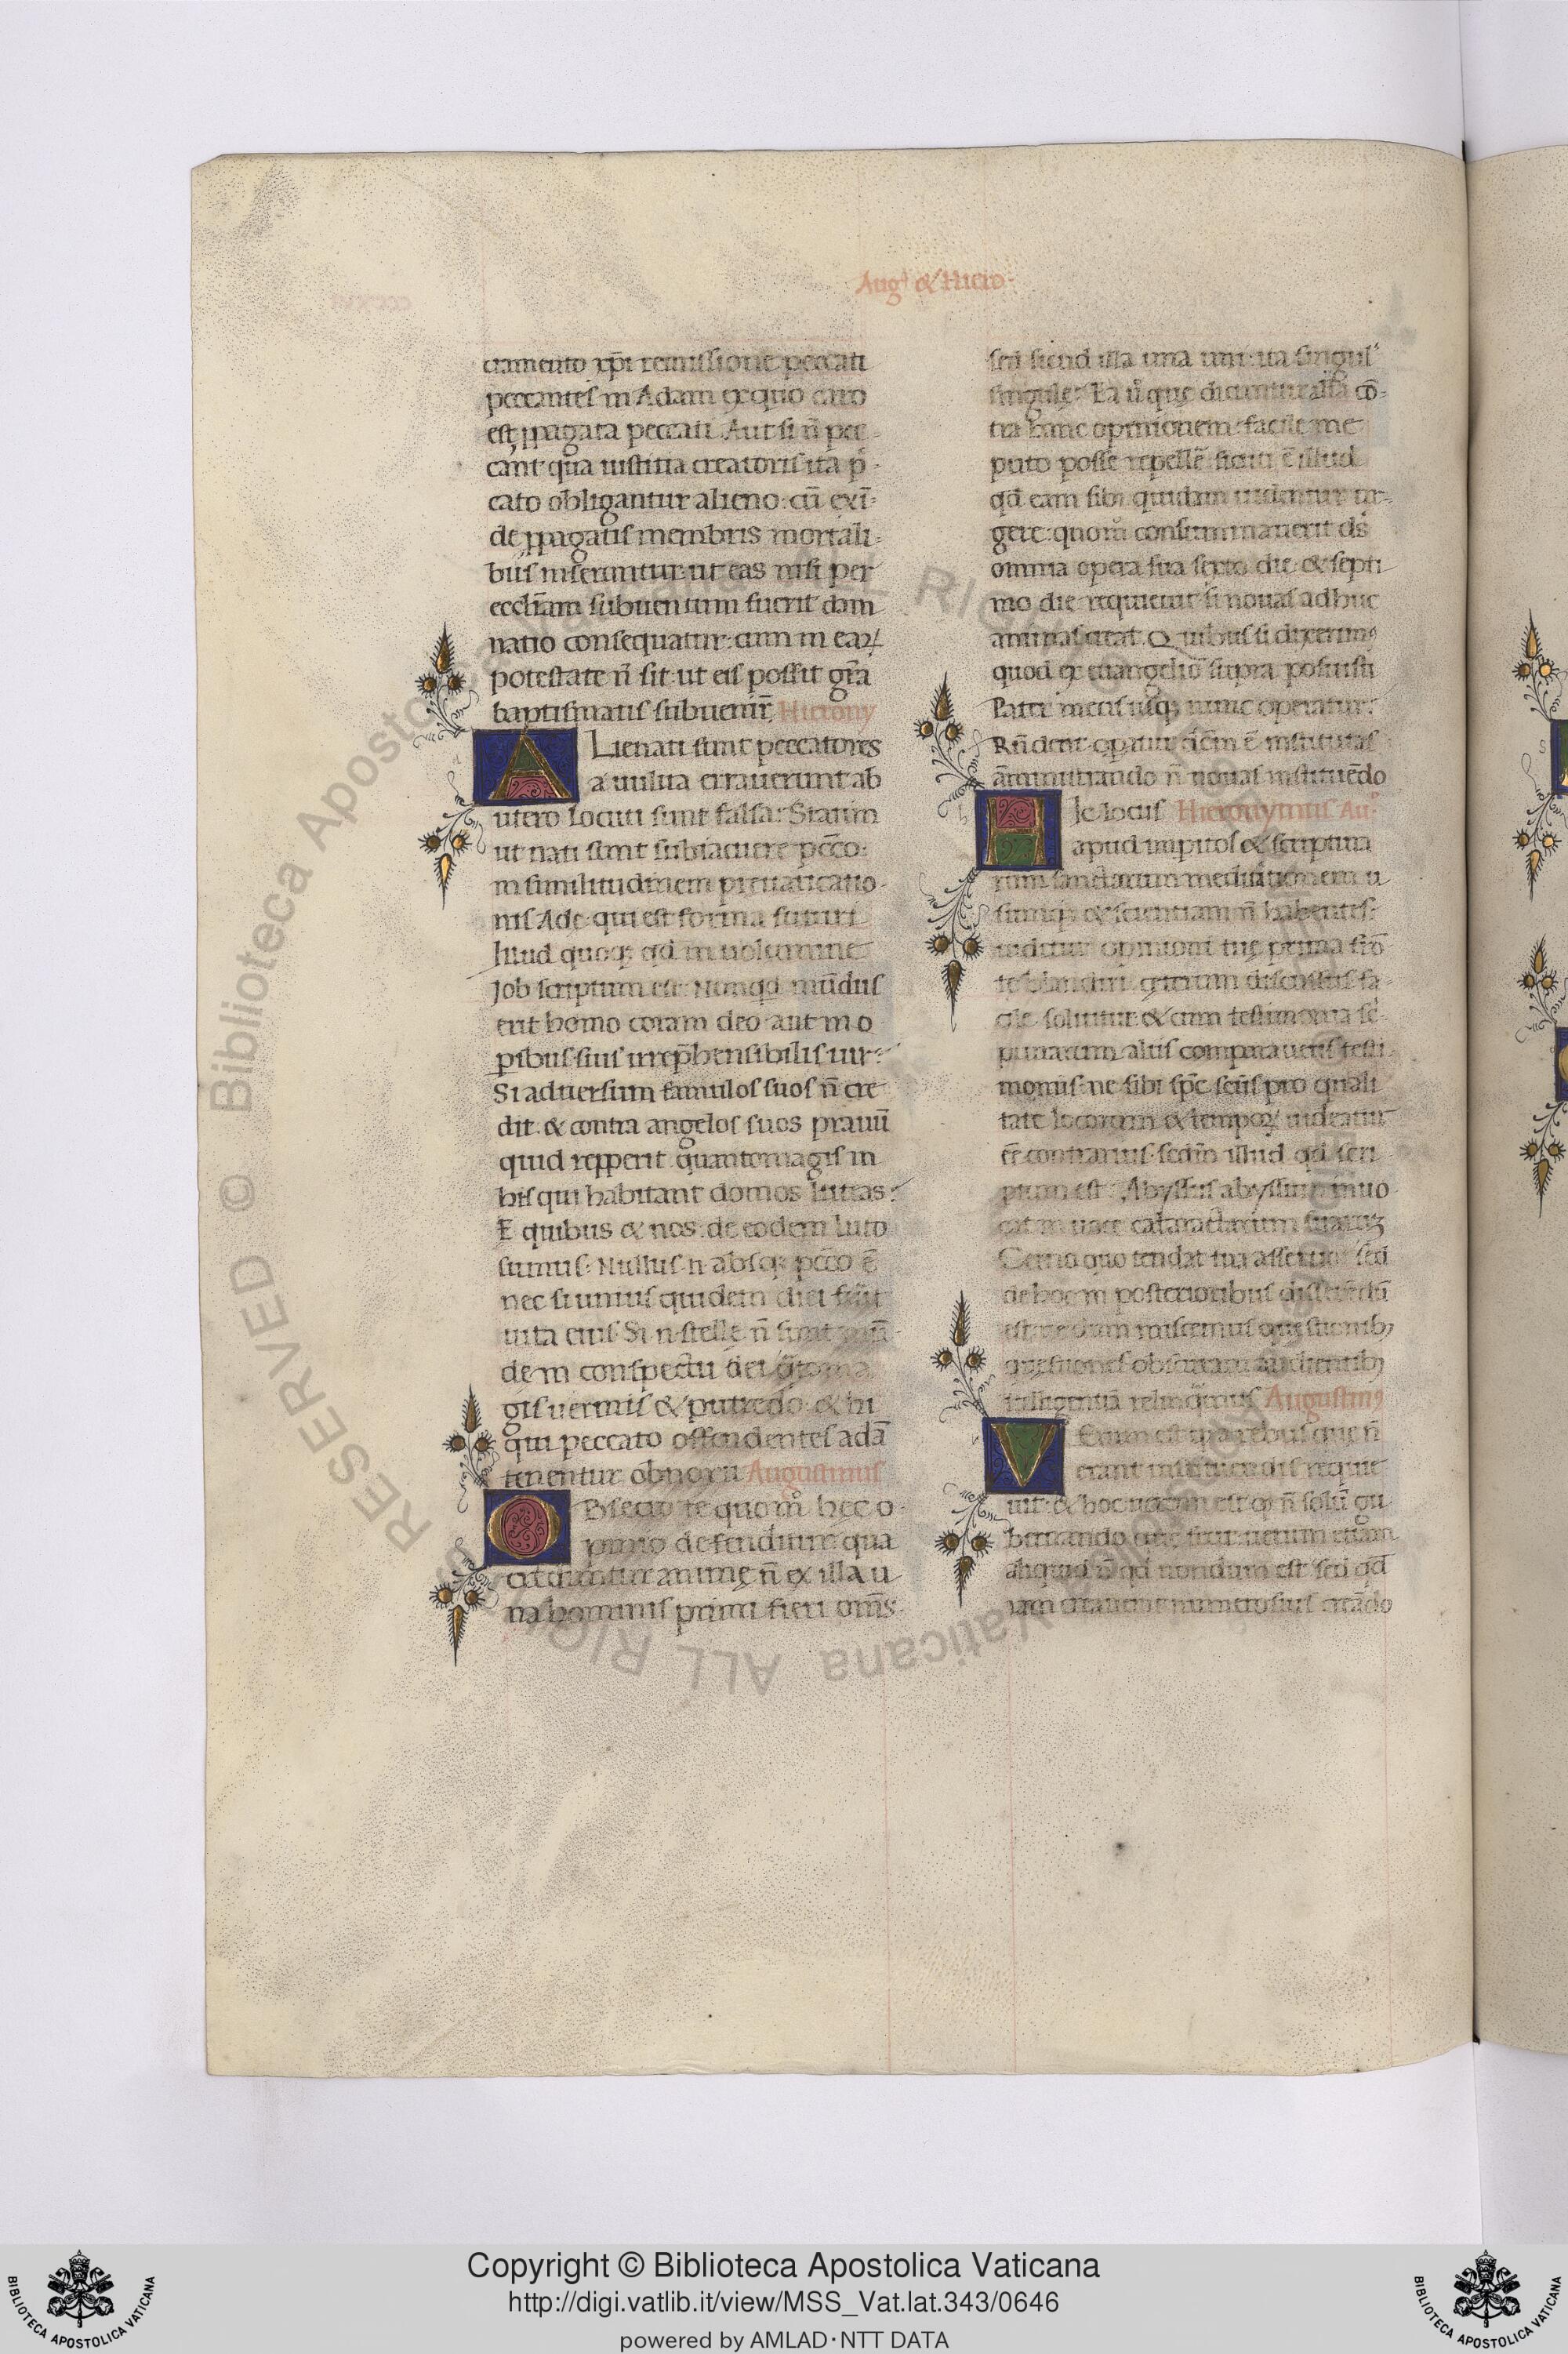 Augˡ & Hiero·
cramento xp̄i remissione peccati
peccantes in Adam ex quo caro
est ꝓpagata peccati. Aut si n̄ pec-
cant qua iustitia creatoris ita p̄-
cato obligantur alieno: cū exī-
de ꝓpagatis membris mortali-
bus inseruntur: ut eas nisi per
eccl̄iam subuentum fuerit dam
natio consequatur: cum in eaꝝ
potestate n̄ sit: ut eis possit gr̄a
baptismatis subueniri; Hierony
ALienati sunt peccatores
a uulua errauerunt ab
utero locuti sunt falsa: Statim
ut nati sunt subiacuere pc̄co:
in similitudinem preuaricatio-
nis Ade: qui est forma futuri
Illud quoq; qd in uolumine
Job scriptum est: Nunqd mūdus
erit homo coram deo aut in o
ꝑibus suis irrep̄hensibilis uir:
Si aduersum famulos suos n̄ cre
dit. & contra angelos suos prauū
quid repperit quantomagis in
his qui habitant domos luteas:
E quibus & nos de eodem luto
sumus: Nullus n absq; pc̄co ē
nec si unius quidem diei fuit
uita eius. Si n stelle n̄ sunt mū-
de in conspectu dei
gis uermis & putredo: & hi
qui peccato offendentes adā
tenentur obnoxii Augustinus
OBsecro te quom̊ hec o-
pinio defenditur qua
creduntur anime n̄ ex illa u
na hominis primi fieri om̄s
sed sicud illa una uni: ita singul'
singule: Ea u̇ que dicuntur alia cō-
tra hanc opinionem: facile me
puto posse repelle: sicut ē illud
qd eam sibi quidam uidentur ur-
gere: quom̊ consummauerit ds̄
omnia opera sua sexto die: & septi
mo die requieuit si nouas adhuc
animas creat. Quibus si dixerimꝰ
quod ex euangelio supra posuisti
Pater meus usq; nunc operatur:
Rn̄dent
āmministrando n̄ nouas instituēdo
HIc locus Hieronymus Auᵖ·
apud imperitos & scriptura
rum sanctarum meditationem u
sumq; & scientiam n̄ habentes:
uidetur opinioni tue prima frō
te blandiri. ceterum discussus fa-
cile soluitur: & cum testimonia sc̄
pturarum aliis comparaueris testi
moniis: ne sibi sp̄c sc̄us pro quali
tate locorum & tempoꝝ uideatur
ēē contrarius. secdm illud qd scri
ptum est: Abyssus abyssum inuo
cat in uoce cataractarum tuaruꝫ
Cerno quo tendat tua assertio: sed
de hoc in posterioribus disserēdū
est: ne dum miscemus questionibꝫ
questiones obscuram audientibꝫ
intelligentiā relinquamus Augustinꝰ
VErum est quia rebus que n̄
erant instituendis requie
uit: & hoc uerum est qꝫ n̄ solū gu
bernando que fiunt: uerum etiam
aliquid n̄ qd nondum est sed qd
iam creauerit numerosius creādo
Copyright © Biblioteca Apostolica Vaticana
http://digi.vatlib.it/view/MSS_Vat.lat.343/0646
powered by AMLAD·NTT DATA